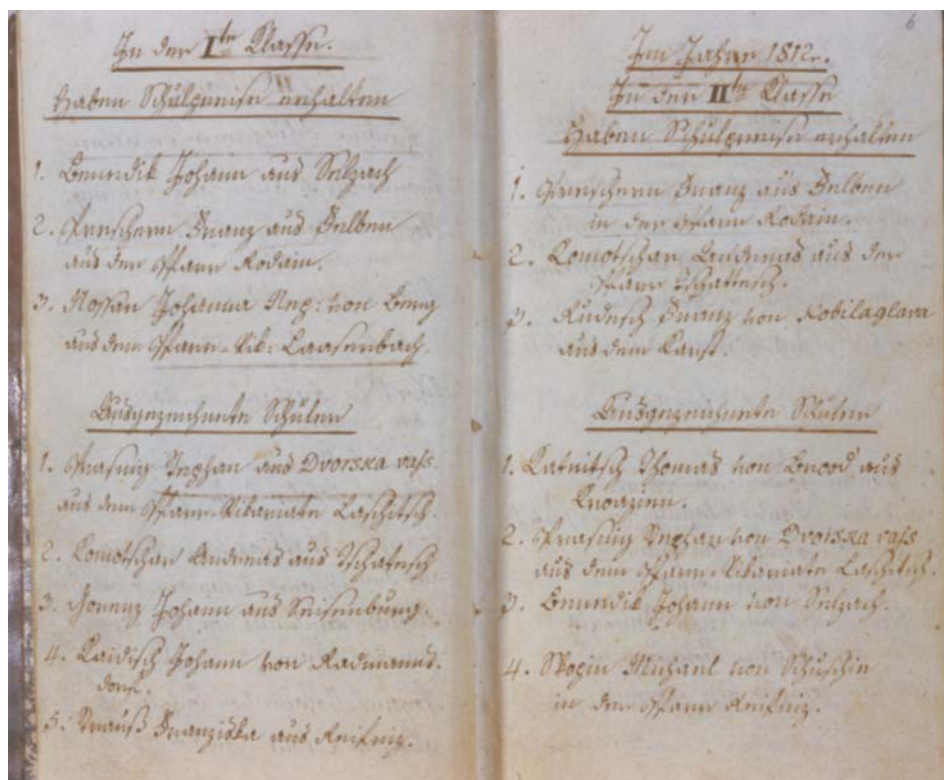 In der I.te Classe.
haben Schulpreise erhalten
1. Benedik Johann aus Selzach
2. Prescheren Franz aus Selben
aus der Pfarr Rodain.
3. Johanna Nep: von Berg
aus dem Pfarr-Vik: Laasenbach.
Ausgezeichnete Schüler
1. Stephan aus Dvorska vass.
aus dem Pfarr-Vikariate Laschitsch.
2. Komotschar Andreas aus Tschatesch
3. Gorenz Johann aus Seisenburg.
4. Laidisch Johann von Radmanns-
dorf.
5. Strauß Franziska aus Reifniz.
6
Im Jahre 1812.
In der II.te Classe
haben Schulpreise erhalten
1. Prescheren Franz aus Selben
in der Pfarr Rodain.
2. Komotschar Andreas aus der
Pfarr Tschattesch.
3. Rudesch Franz von Kobilaglava
aus dem Karst.
Ausgezeichnete Schüler
1. Thomas von Brood aus
Kroazien.
2. Stephan von Dvorska vass
aus dem Pfarr-Vikariate Laschitsch.
3. Benedik Johann von Selzach.
4. Michael von
in der Pfarr Reifniz.